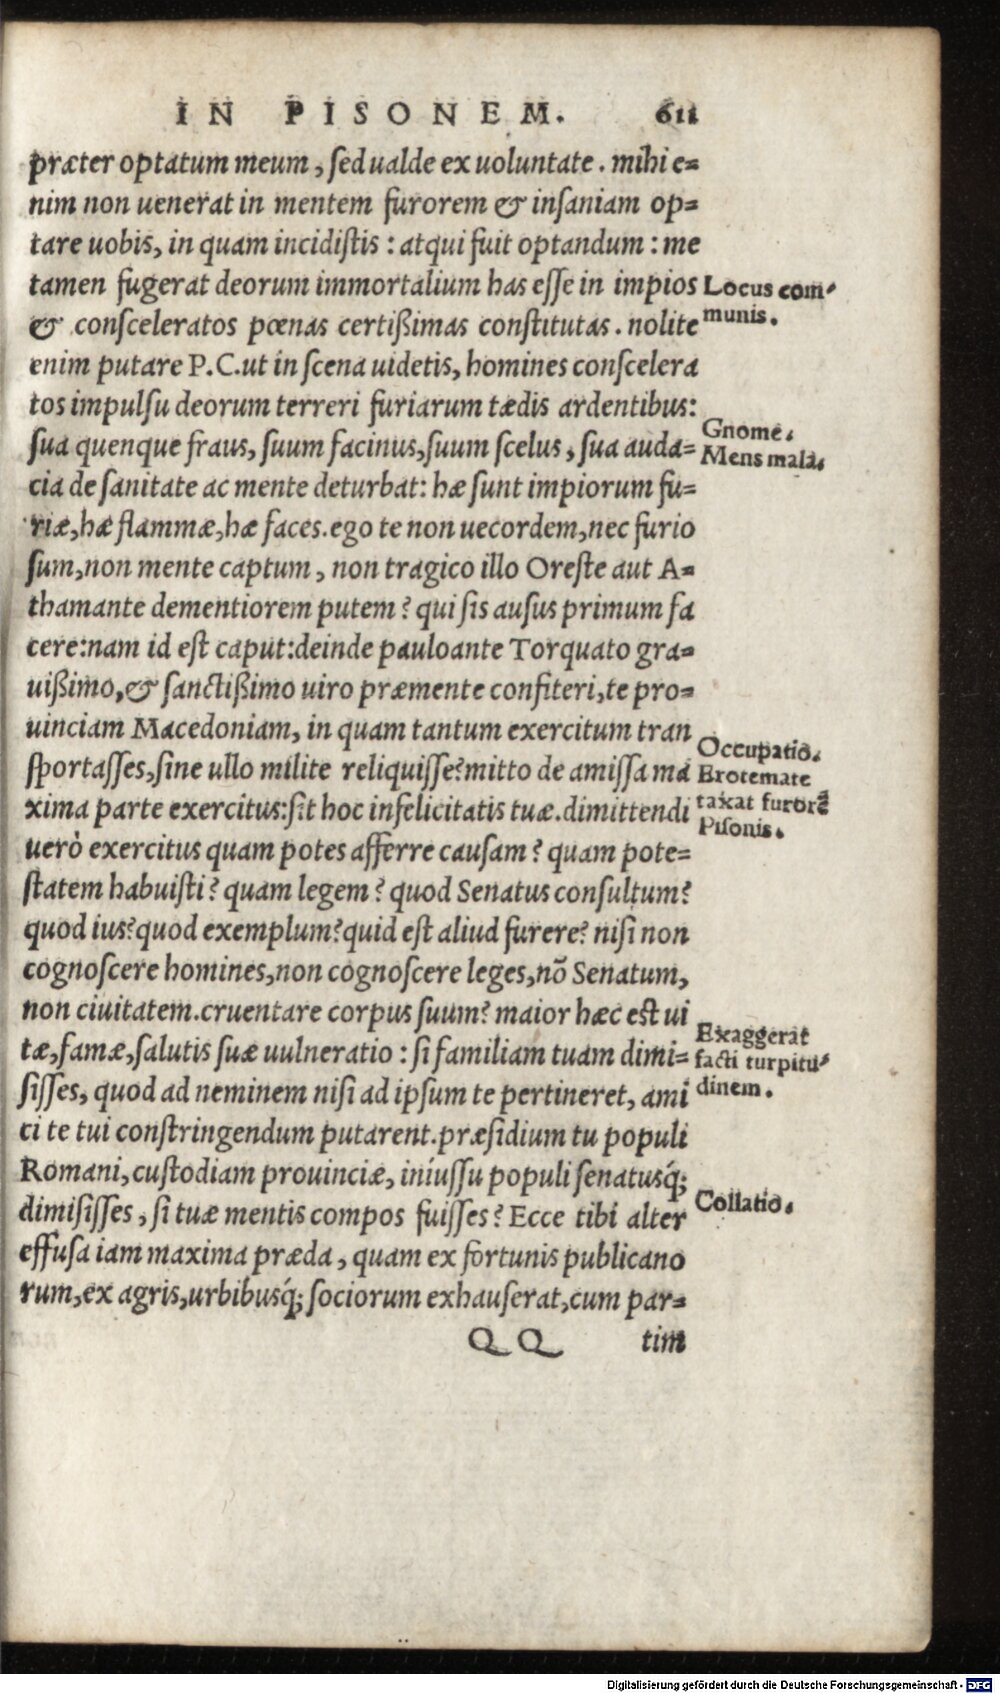 IN PISONEM. 611
præter optatum meum, ſed ualde ex uoluntate. mihi e=
nim non uenerat in mentem furorem & inſaniam op=
tare uobis, in quam incidiſtis: atqui fuit optandum: me
tamen fugerat deorum immortalium has eſſe in impios
& conſceleratos pœnas certißimas conſtitutas. nolite
enim putare P.C. ut in ſcena uidetis, homines conſcelera
tos impulſu deorum terreri furiarum tædis ardentibus:
ſua quenque fraus, ſuum facinus, ſuum ſcelus, ſua auda=
cia de ſanitate ac mente deturbat: hæ ſunt impiorum fu=
riæ, hæ flammæ, hæ faces. ego te non uecordem, nec furio
ſum, non mente captum, non tragico illo Oreſte aut A=
thamante dementiorem putem? qui ſis auſus primum fa
cere: nam id eſt caput: deinde pauloante Torquato gra=
uißimo, & ſanctißimo uiro præmente confiteri, te pro=
uinciam Macedoniam, in quam tantum exercitum tran
ſportaſſes, ſine ullo milite reliquiſſe? mitto de amiſſa ma
xima parte exercitus: ſit hoc infelicitatis tuæ. dimittendi
uerò exercitus quam potes afferre cauſam? quam pote=
ſtatem habuiſti? quam legem? quod Senatus conſultum?
quod ius? quod exemplum? quid eſt aliud furere? niſi non
cognoſcere homines, non cognoſcere leges, nõ Senatum,
non ciuitatem. cruentare corpus ſuum? maior hæc eſt ui
tæ, famæ, ſalutis ſuæ uulneratio: ſi familiam tuam dimi=
ſiſſes, quod ad neminem niſi ad ipſum te pertineret, ami
ci te tui conſtringendum putarent. præſidium tu populi
Romani, cuſtodiam prouinciæ, iniuſſu populi ſenatusq́;
dimiſiſſes, ſi tuæ mentis compos fuiſſes? Ecce tibi alter
effuſa iam maxima præda, quam ex fortunis publicano
rum, ex agris, urbibusq́; ſociorum exhauſerat, cum par=
QQ tim
Locus com-
munis.
Gnome.
Mens mala.
Occupatio.
Erotemate
taxat furorẽ
Piſonis.
Exaggerat
facti turpitu-
dinem.
Collatio.
Digitalisierung gefördert durch die Deutsche Forschungsgemeinschaft - DFG